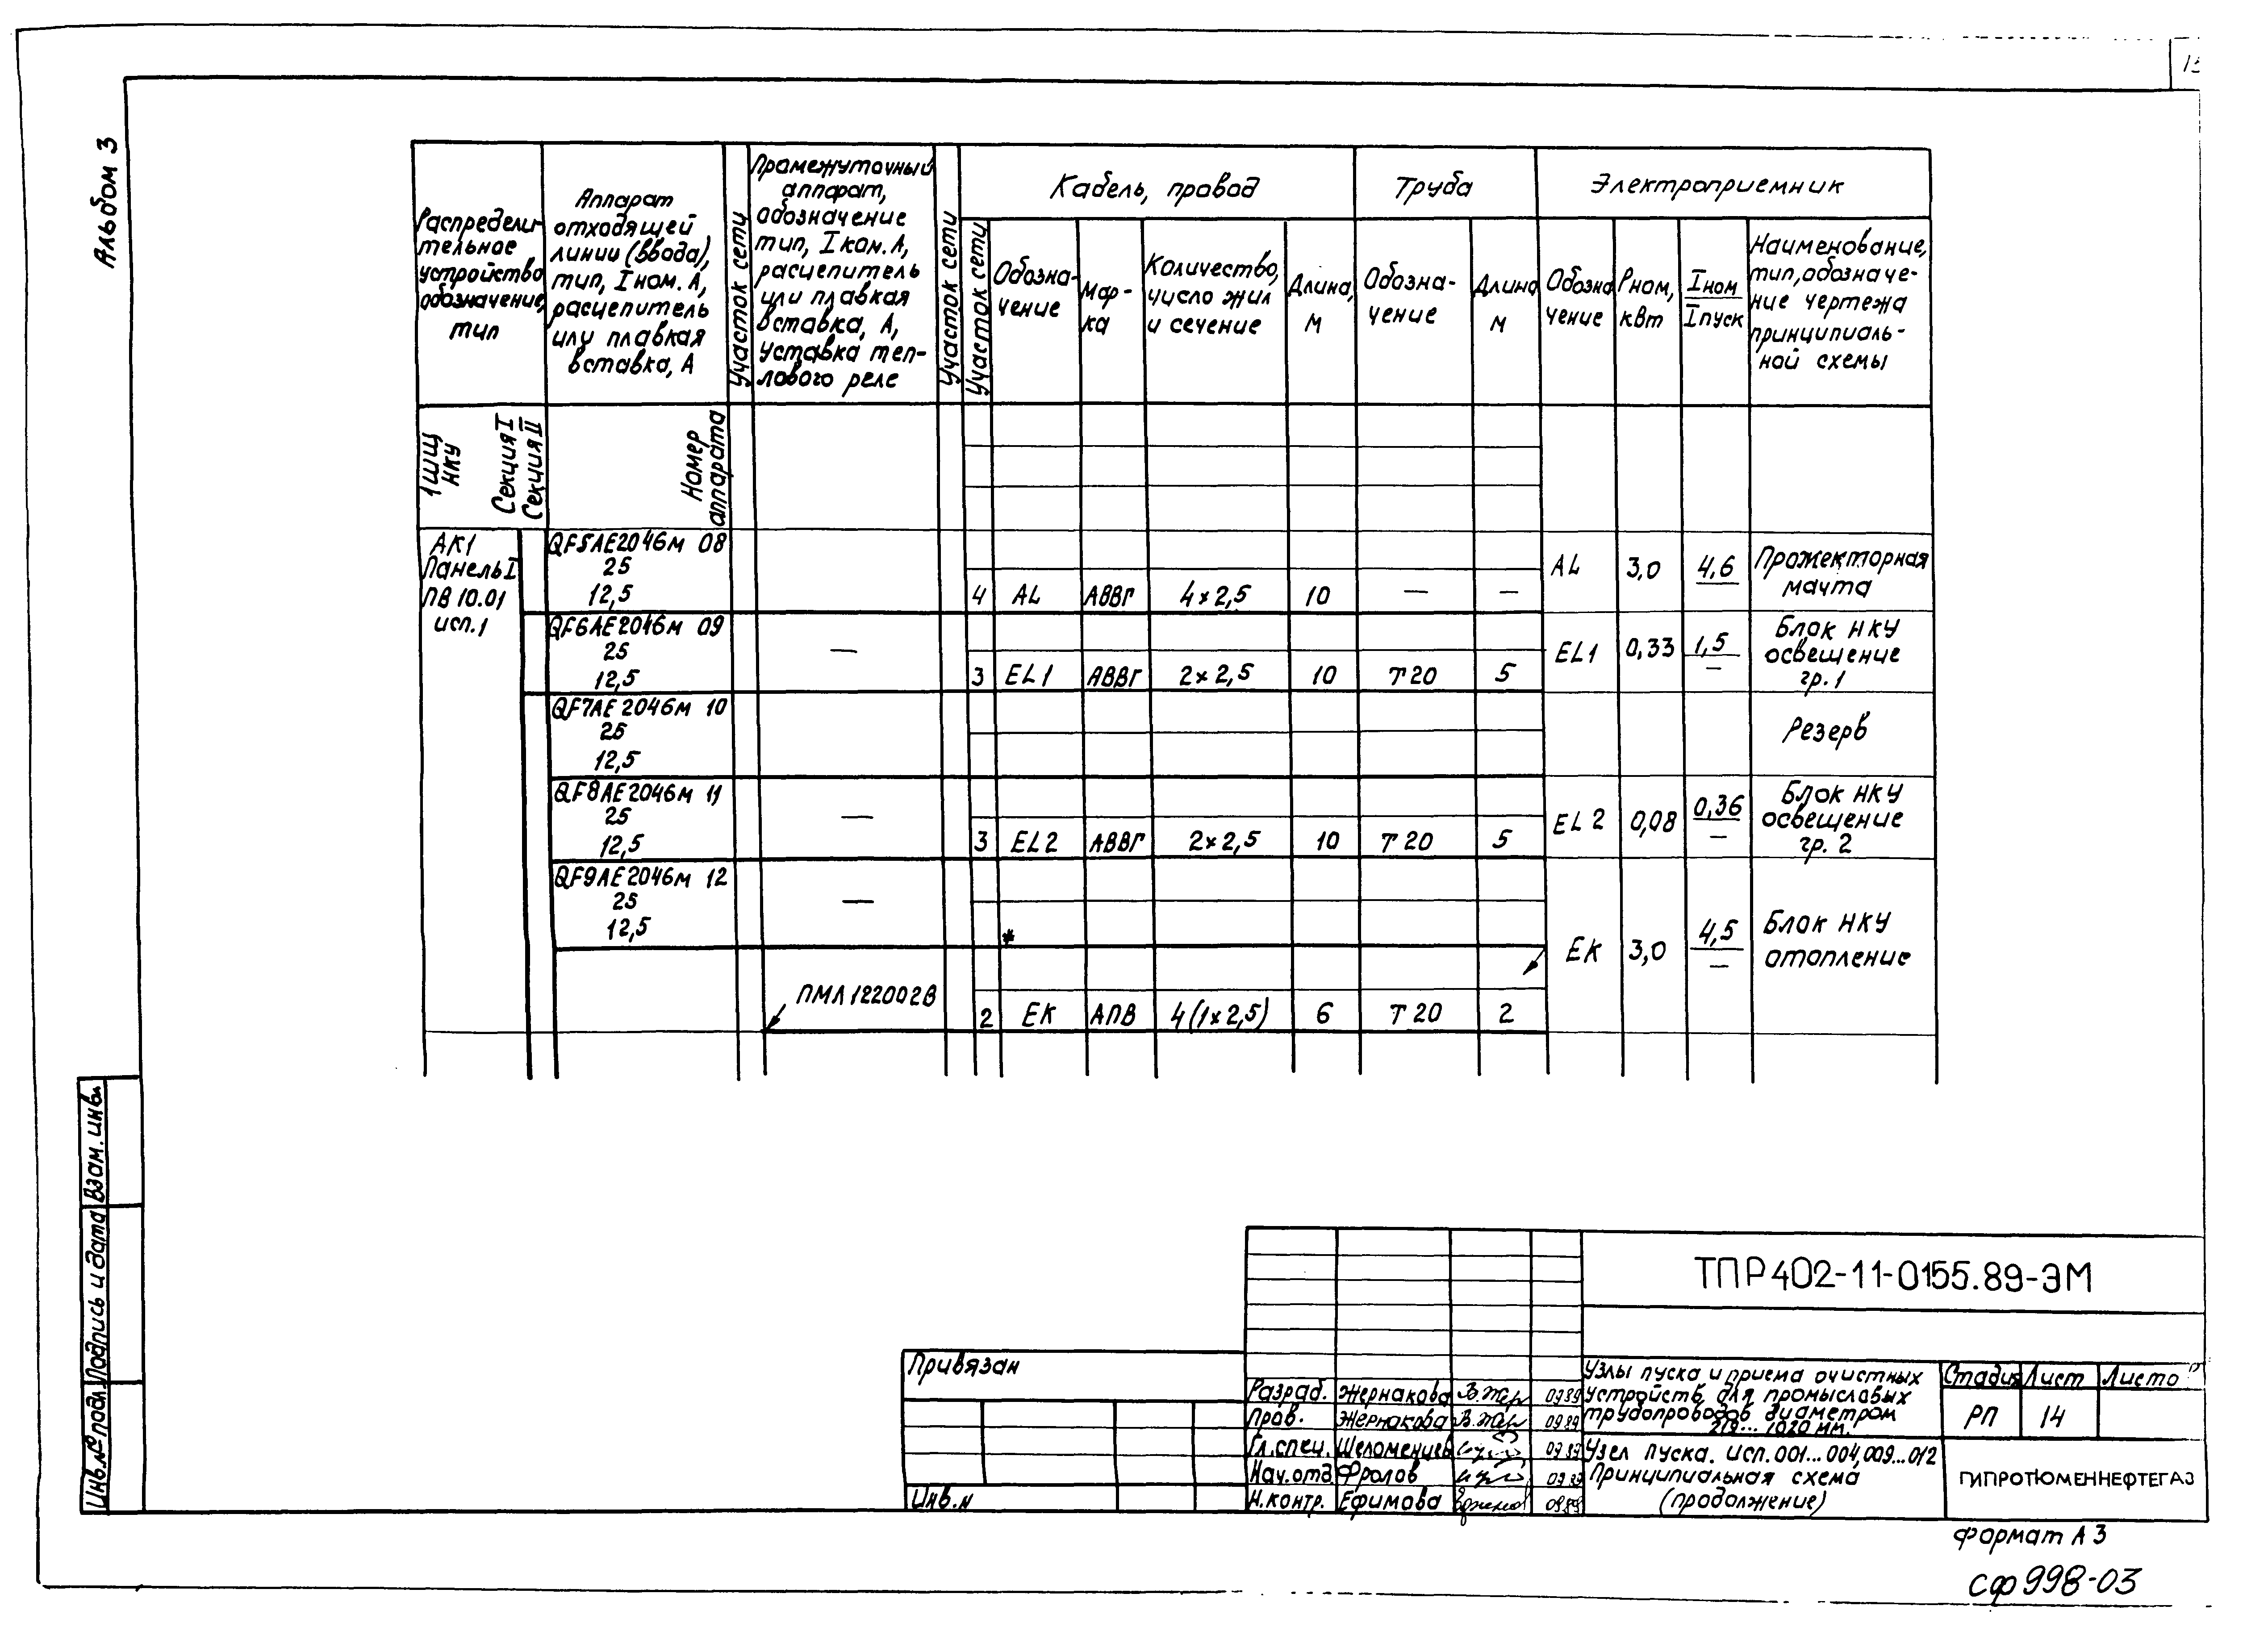 Альбом 3
Распредели-
тельное
устройство,
обозначение,
тип
Аппарат
отходящей
линии (ввода),
тип, Iном. А,
расцепитель
или плавкая
вставка, А
Участок сети
Промежуточный
аппарат,
обозначение
тип, Iком. А,
расцепитель
или плавкая
вставка, А,
уставка теп-
лового реле
Участок сети
Кабель, провод
Участок сети
Обозна-
чение
Мар-
ка
Количество,
число жил
и сечение
Длина,
м
Труба
Обозна-
чение
Длина
м
Электроприемник
Обозна
чение
Рном,
кВт
Iном
Iпуск
Наименование,
тип, обозначе-
ние чертежа
принципиаль-
ной схемы
1ШЩ
НКУ
Секция I
Секция II
Номер
аппарата
АК1
Панель I
ПВ 10.01
исп.1
QF5АЕ2046М 08
25
12,5
4 АL АВВГ 4×2,5 10 — —
АL 3,0 4,6
Прожекторная
мачта
QF6АЕ2046М 09
25
12,5
—
3 EL1 АВВГ 2×2,5 10 Т20 5
EL1 0,33 1,5
—
Блок НКУ
освещение
гр.1
QF7АЕ2046М 10
25
12,5
Резерв
QF8АЕ2046М 11
25
12,5
—
3 EL2 АВВГ 2×2,5 10 Т20 5
EL2 0,08 0,36
—
Блок НКУ
освещение
гр. 2
QF9АЕ2046М 12
25
12,5
—
*
ПМЛ122002В
2 ЕК АПВ 4(1×2,5) 6 Т20 2
ЕК 3,0 4,5
—
Блок НКУ
отопление
Инв.№ подл. Подпись и дата Взам. инв.
Привязан
Инв.N
ТПР402-11-0155.89-ЭМ
Разраб. Жернакова 0989
Пров. Жернакова 0989
Гл.спец. Шеломенцев 0989
Нач.отд Фролов 0989
Н.контр. Ефимова 0989
Узлы пуска и приема очистных
устройств для промысловых
трубопроводов диаметром
219... 1020 мм.
Стадия Лист Листо
РП 14
Узел пуска. исп. 001...004,009...012
Принципиальная схема
(продолжение)
ГИПРОТЮМЕННЕФТЕГАЗ
Формат А3
сф998-03